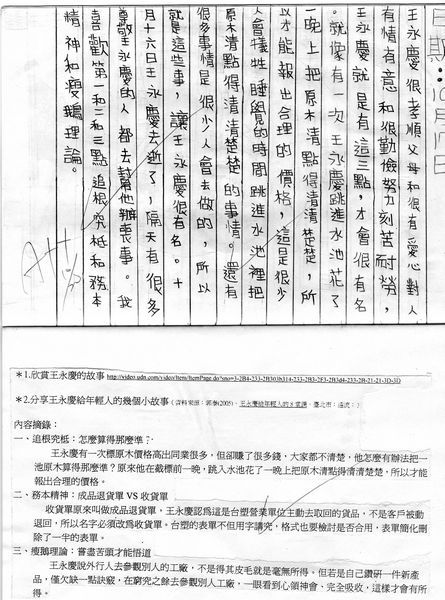 日期:10月17日
王永慶很孝順父母和很有愛心對人
有情有意和很勤儉努力刻苦耐勞,
王永慶就是有這三點,才會很有名
。就像有一次王永慶跳進水池花了
一晚上把原木清點得清清楚楚,所
以才能報出合理的價格,這是很少
人會犧牲睡覺的時間跳進水池裡把
原木清點得清清楚楚的事情。還有
很多事情是很少人會去做的,所以
就是這些事,讓王永慶很有名。十
月十六日王永慶去逝了,隔天有很多
尊敬王永慶的人都去幫他辦喪事。我
喜歡第一和二和三點追根究柢和務本
精神和瘦鵝理論。
A+
*1.欣賞王永慶的故事
*2.分享王永慶給年輕人的幾個小故事(資料來源:郭泰(2005)。王永慶給年輕人的8堂課。臺北市:遠流。)
內容摘錄:
一、追根究柢:怎麼算得那麼準?
王永慶有一次標原木價格高出同業很多,但卻賺了很多錢,大家都不清楚,他怎麼有辦法把一
池原木算得那麼準?原來他在截標前一晚,跳入水池花了一晚上把原木清點得清清楚楚,所以才能
報出合理的價格。
二、務本精神:成品退貨單 VS 收貨單
收貨單原來叫做成品退貨單,王永慶認為這是台塑營業單位主動去取回的貨品,不是客戶被動
退回,所以名字必須改為收貨單。台塑的表單不但用字講究,格式也要檢討是否合用,表單簡化刪
除了一半的表單。
三、瘦鵝理論:嘗盡苦頭才能悟道
王永慶說外行人去參觀別人的工廠,不是得其皮毛就是毫無所得。但若是自己鑽研一件新產
品,僅欠缺一點訣竅,在窮究之餘去參觀別人工廠,一眼看到心領神會、完全吸收,這樣才會有所
得。